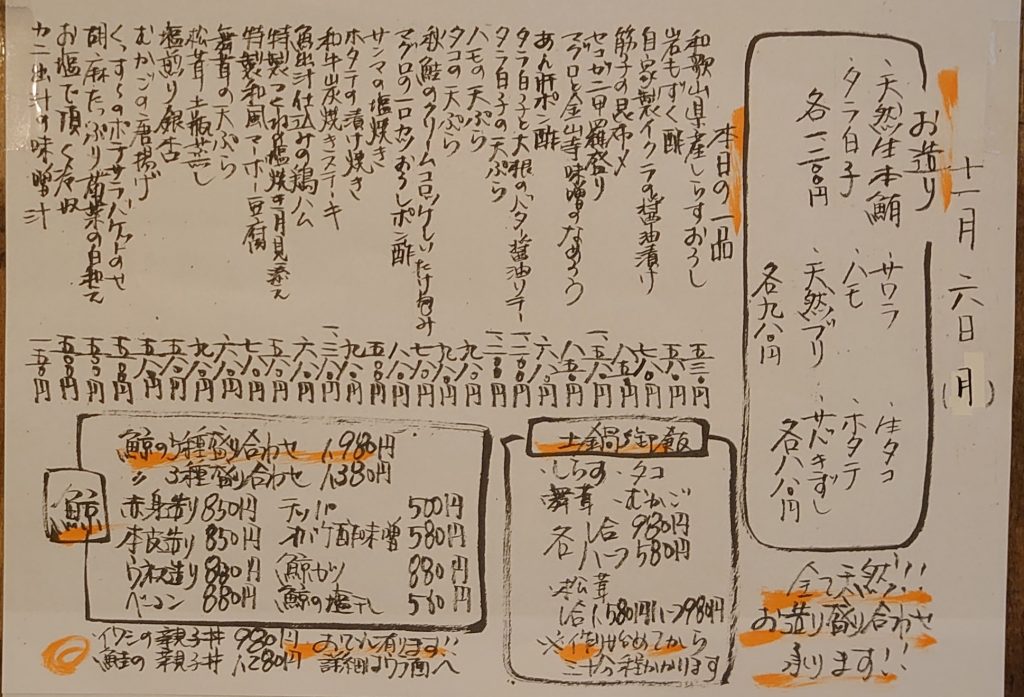 十一月六日(月)
お造り
・天然生本鮪
・タラ白子
各一二〇〇円
・サワラ
・ハモ
・天然ブリ
各九八〇円
・生タコ
・ホタテ
・サバきずし
各八八〇円
全て天然!!
お造り盛り合わせ
承ります!!
本日の一品
和歌山県産しらすおろし 五三〇円
岩もずく酢 五八〇円
自家製イクラの醤油漬け
筋子の昆布〆
セコガニ甲羅盛り
マグロと金山寺味噌のなめろう
あん肝ポン酢
タラ白子と大根のバター醤油ソテー
タラ白子の天ぷら
ハモの天ぷら
タコの天ぷら
秋鮭のクリームコロッケしいたけ包み
マグロの一口カツおろしポン酢
サンマの塩焼き
ホタテの漬け焼き
和牛炭焼きステーキ
魚出汁仕込みの鶏ハム
特製つくね塩焼き月見添え
特製和風マーボー豆腐
舞茸の天ぷら
松茸土瓶蒸し
塩煎り銀杏
むかごの唐揚げ
くっすんのポテサラバゲットのせ
胡麻たっぷり菊菜の白和え
お塩で頂く冷奴
カニ出汁の味噌汁
土鍋御飯
しらす・タコ
舞茸・むかご
各一合980円
ハーフ580円
松茸
一合1,580円ハーフ980円
※作り始めてから
三十分程かかります
鯨
鯨の5種盛り合わせ 1,980円
〃 3種盛り合わせ 1,380円
赤身造り 850円
本皮造り 850円
ウネス造り 880円
ベーコン 880円
テッパ 500円
オバケ酢味噌 580円
鯨カツ 880円
鯨の塩干し 580円
イワシの親子丼 980円
鮭の親子丼 1,280円
おでん有ります!!
詳細はウラ面へ